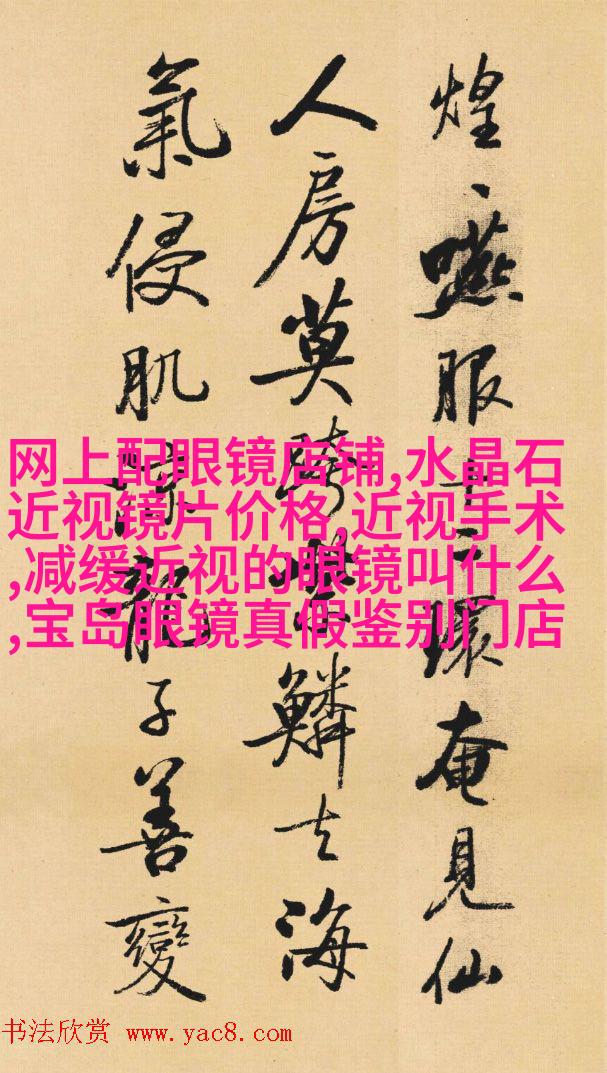 煌、嚥服十二環奄見仙
人房莫跨紫鱗去海
氣侵肌涼龍子善變
网上配眼镜店铺,水晶石
近视镜片价格,近视手术
,减缓近视的眼镜叫什么
,宝岛眼镜真假鉴别门店
书法欣赏 www.yac8.com